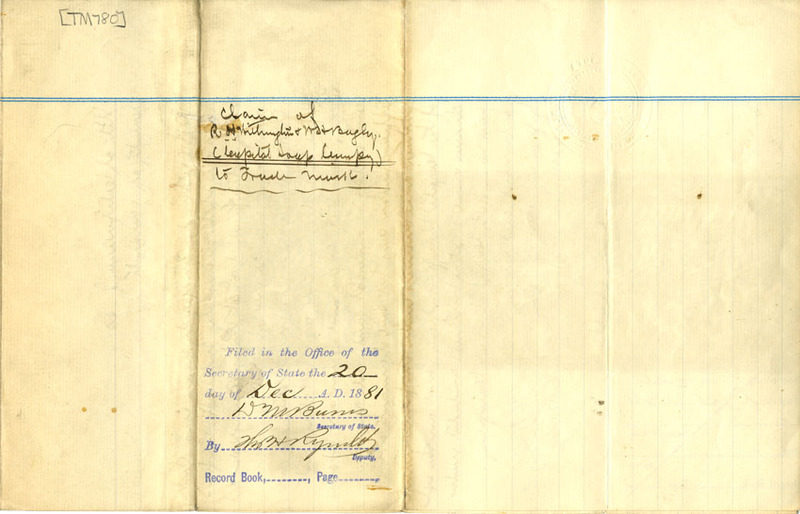 [TM780]
Claim of
R H Withington & W H Bagley.
(Capital Soap Compy)
to Trade Mark.
Filed in the Office of the
Secretary of State the 20
day of Dec A. D. 1881
D M Burns
Secretary of State.
By Thos H Reynolds
Deputy.
Record Book, , Page